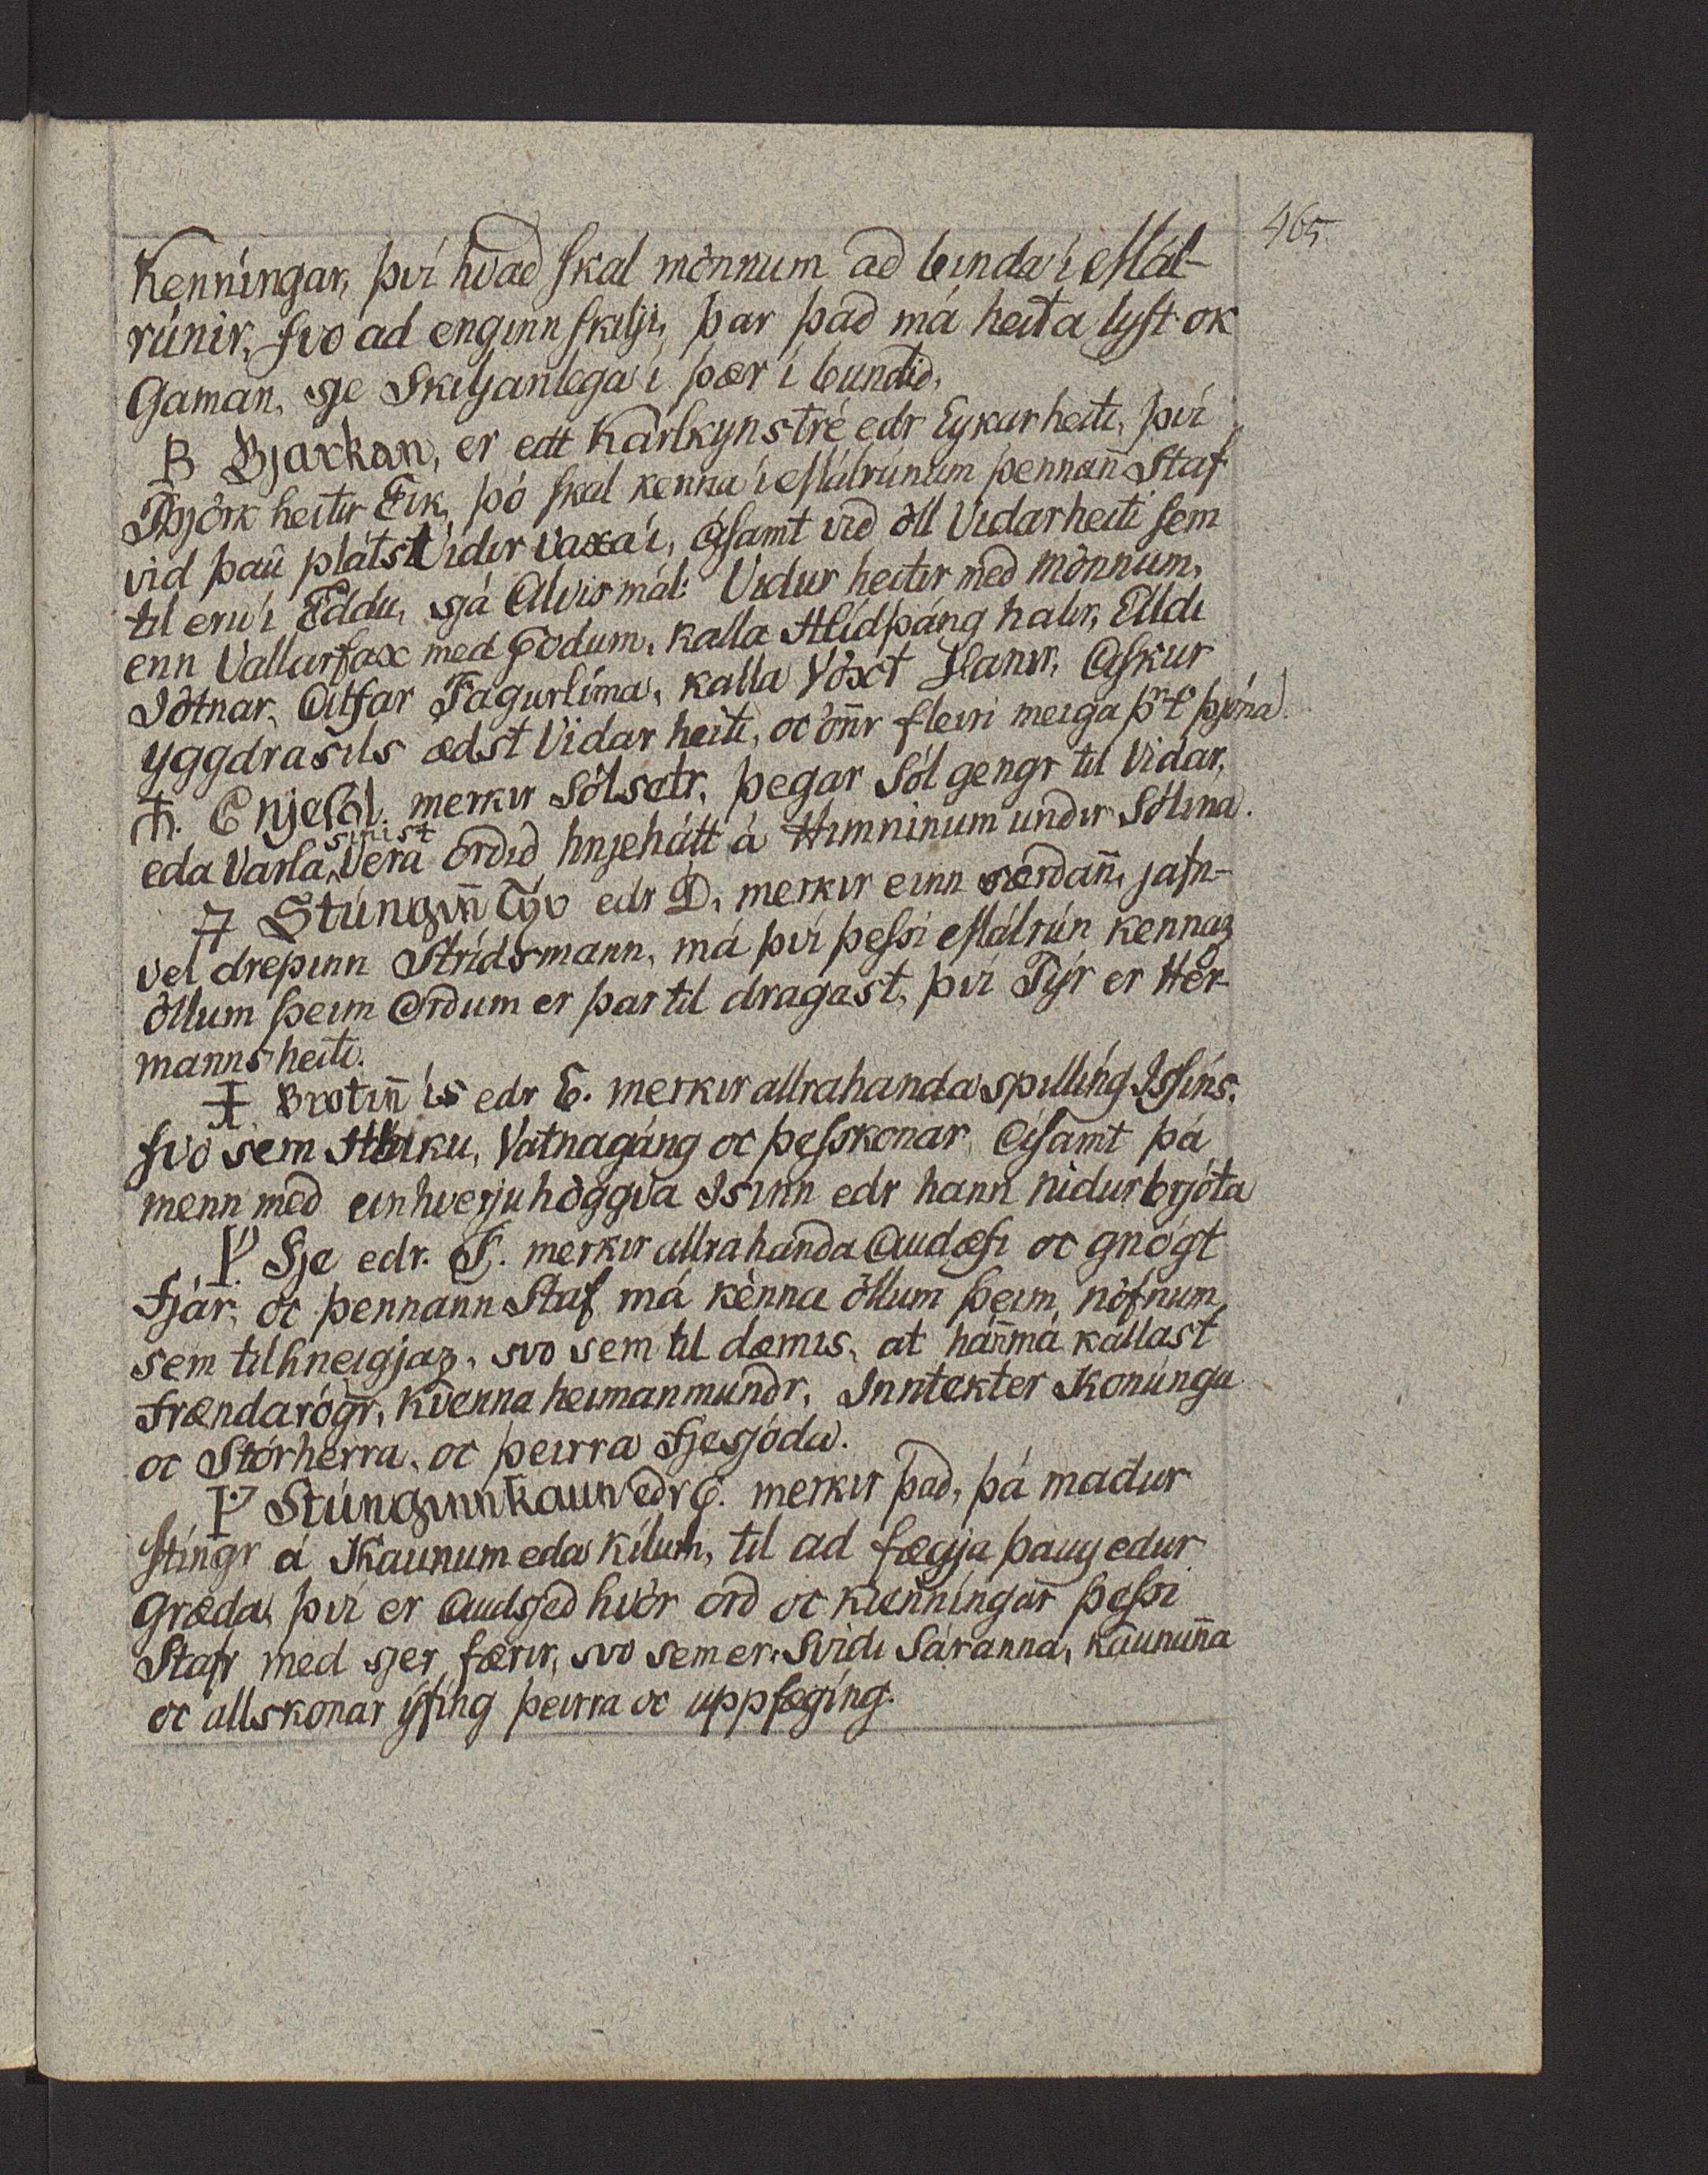 465.
Kenningar, því hvad skal mönnum ad binda í Mál-
rúnir, svo ad enginn skilji, þar þad má heita lyst ok
Gaman, sje Skiljanlega í þær í bundid.
ᛒ Bjarkan, er edt Karlkynstré edr Eykarheiti, því
Björk heitir Eik, þó skal kenna í Málrúnum þennan̄ Staf
vid þau plátst Vidir vaxa í, ásamt vid öll Vidarheiti sem
til eru í Eddu, sjá Alvismál: Vidur heitir med mönnum,
enn Vallarfax med Godum, kalla Hlídþáng halir, Elldi
Jötnar, Alfar Fagurlima, kalla Vöxt Vanir, Askur
yggdrasils ædst Vidar heiti, oc ön̄r fleiri meiga þr t þjóna
Enjesól. merkir Sólsetr, þegar Sól gengr til Vidar,
eda Varla sínist Vera ordid hnjehátt á Himninum undir Sólina.
Stúngin̄ Týr edr D, merkir einn særdan̄, jafn-
vel drepinn Strídsmann, má því þessi Málrún kennaz
öllum þeim Ordum er þar til dragast, því Týr er Her-
mannsheiti.
Brotin̄ ís edr E. merkir allrahanda spilling Issins,
svo sem Hláku, Vatnagáng oc þesskonar, Asamt þá
menn med einhverju höggva Isinn edr hann nidurbrjóta
Fje edr. F. merkir allrahanda Audæfi oc gnógt
Fjár, oc þennann Staf má kenna öllum þeim nöfnum,
sem tilhneigjaz, svo sem til dæmis, at han̄ má kallast
Frændarógr, Kvenna heimanmundr, Inntekter Konúnga
oc Stórherra, oc þeirra Fjesjóda.
Stúnginn kaun edr G. merkir þad, þá madur
stingr á Kaunum eda kílum, til ad fægja þaug edur
Græda, því er Audsjed hvör ord oc kienningar þessi
Stafr med sjer færir, svo sem er. Svidi Sáranna, kaunun̄a
oc allskonar ýfing þeirra oc uppfæging.